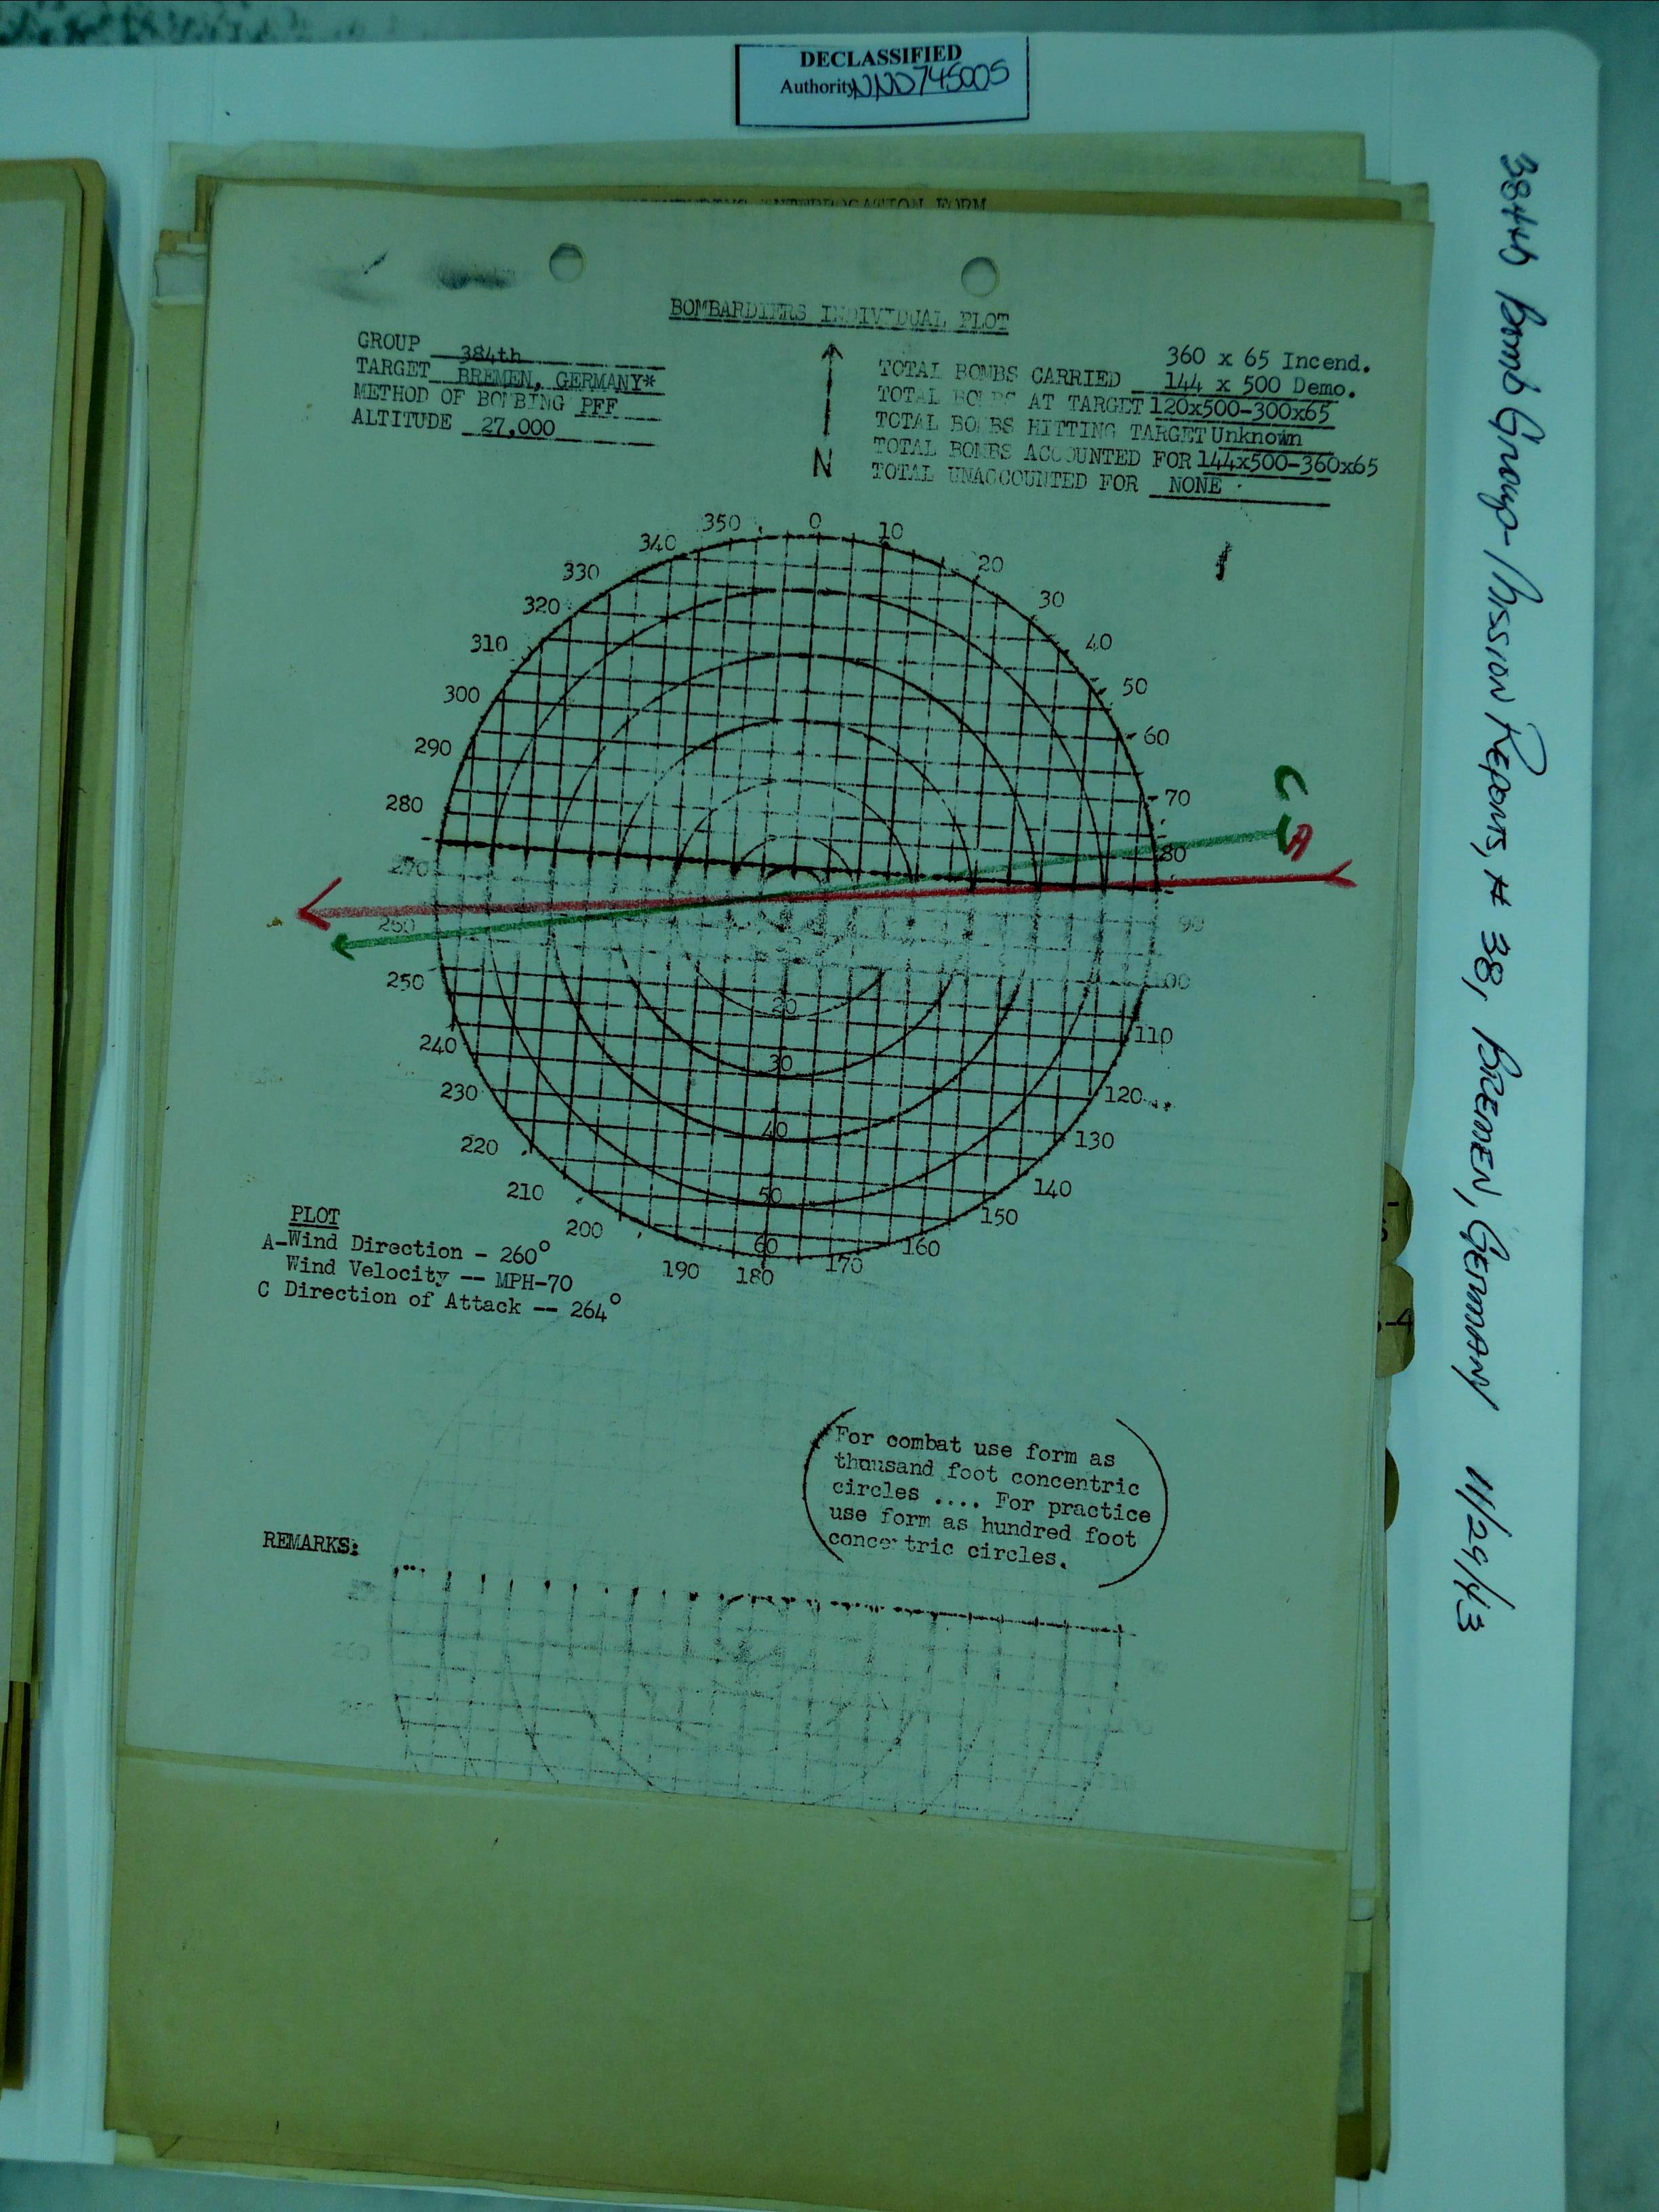 DECLASSIFIED
Authority NND745005
384th Bomb Group - Mission Reports, # 38, BREMEN, GERMANY 11/29/43
INTERROGATION FORM
BOMBARDIERS INDIVIDUAL PLOT
GROUP 384th
TARGET BREMEN, GERMANY*
METHOD OF BOMBING PFF
ALTITUDE 27,000
N
360 x 65 Incend.
TOTAL BOMBS CARRIED 144 x 500 Demo.
TOTAL BOMBS AT TARGET 120x500-300x65
TOTAL BOMBS HITTING TARGET Unknown
TOTAL BOMBS ACCOUNTED FOR 144x500-360x65
TOTAL UNACCOUNTED FOR NONE
350 0 10
340 20
330 30
320 40
310 50
300 60
290 70
280 80
270 90
260 100
250 110
240 120
230 130
220 140
210 150
200 160
190 180 170
20
30
40
50
60
C
A
PLOT
A-Wind Direction - 260°
Wind Velocity -- MPH-70
C Direction of Attack -- 264°
For combat use form as
thousand foot concentric
circles .... For practice
use form as hundred foot
concentric circles.
REMARKS: